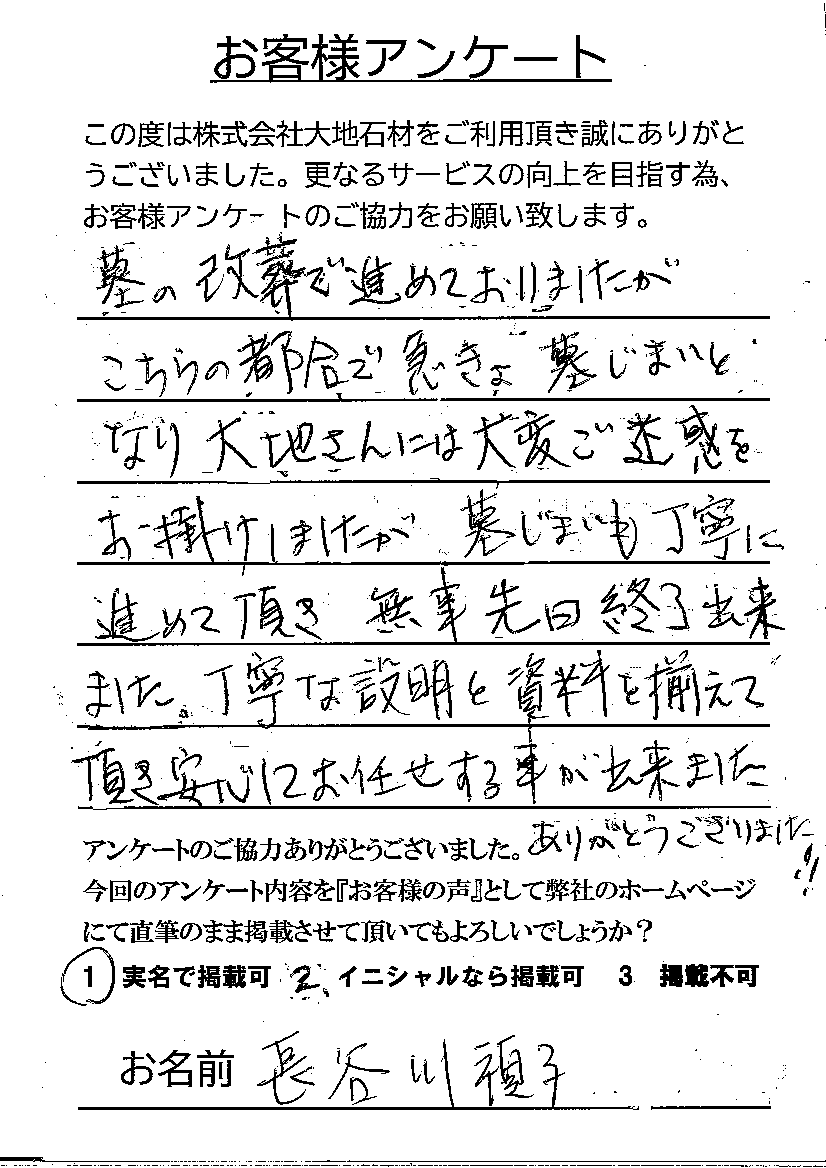 お客様アンケート
この度は株式会社大地石材をご利用頂き誠にありがと
うございました。更なるサービスの向上を目指す為、
お客様アンケートのご協力をお願い致します。
墓の改葬で進めておりましたが
こちらの都合で急きょ墓じまいと
なり大地さんには大変ご迷惑を
お掛けしましたが 墓じまいも丁寧に
進めて頂き 無事先日終了出来
ました。丁寧な設明と資料を揃えて
頂き安心にお任せする事が出来ました
ありがとうございました!!
アンケートのご協力ありがとうございました。
今回のアンケート内容を『お客様の声』として弊社のホームページ
にて直筆のまま掲載させて頂いてもよろしいでしょうか?
1 実名で掲載可 2、イニシャルなら掲載可 3 掲載不可
お名前 長谷川禎子